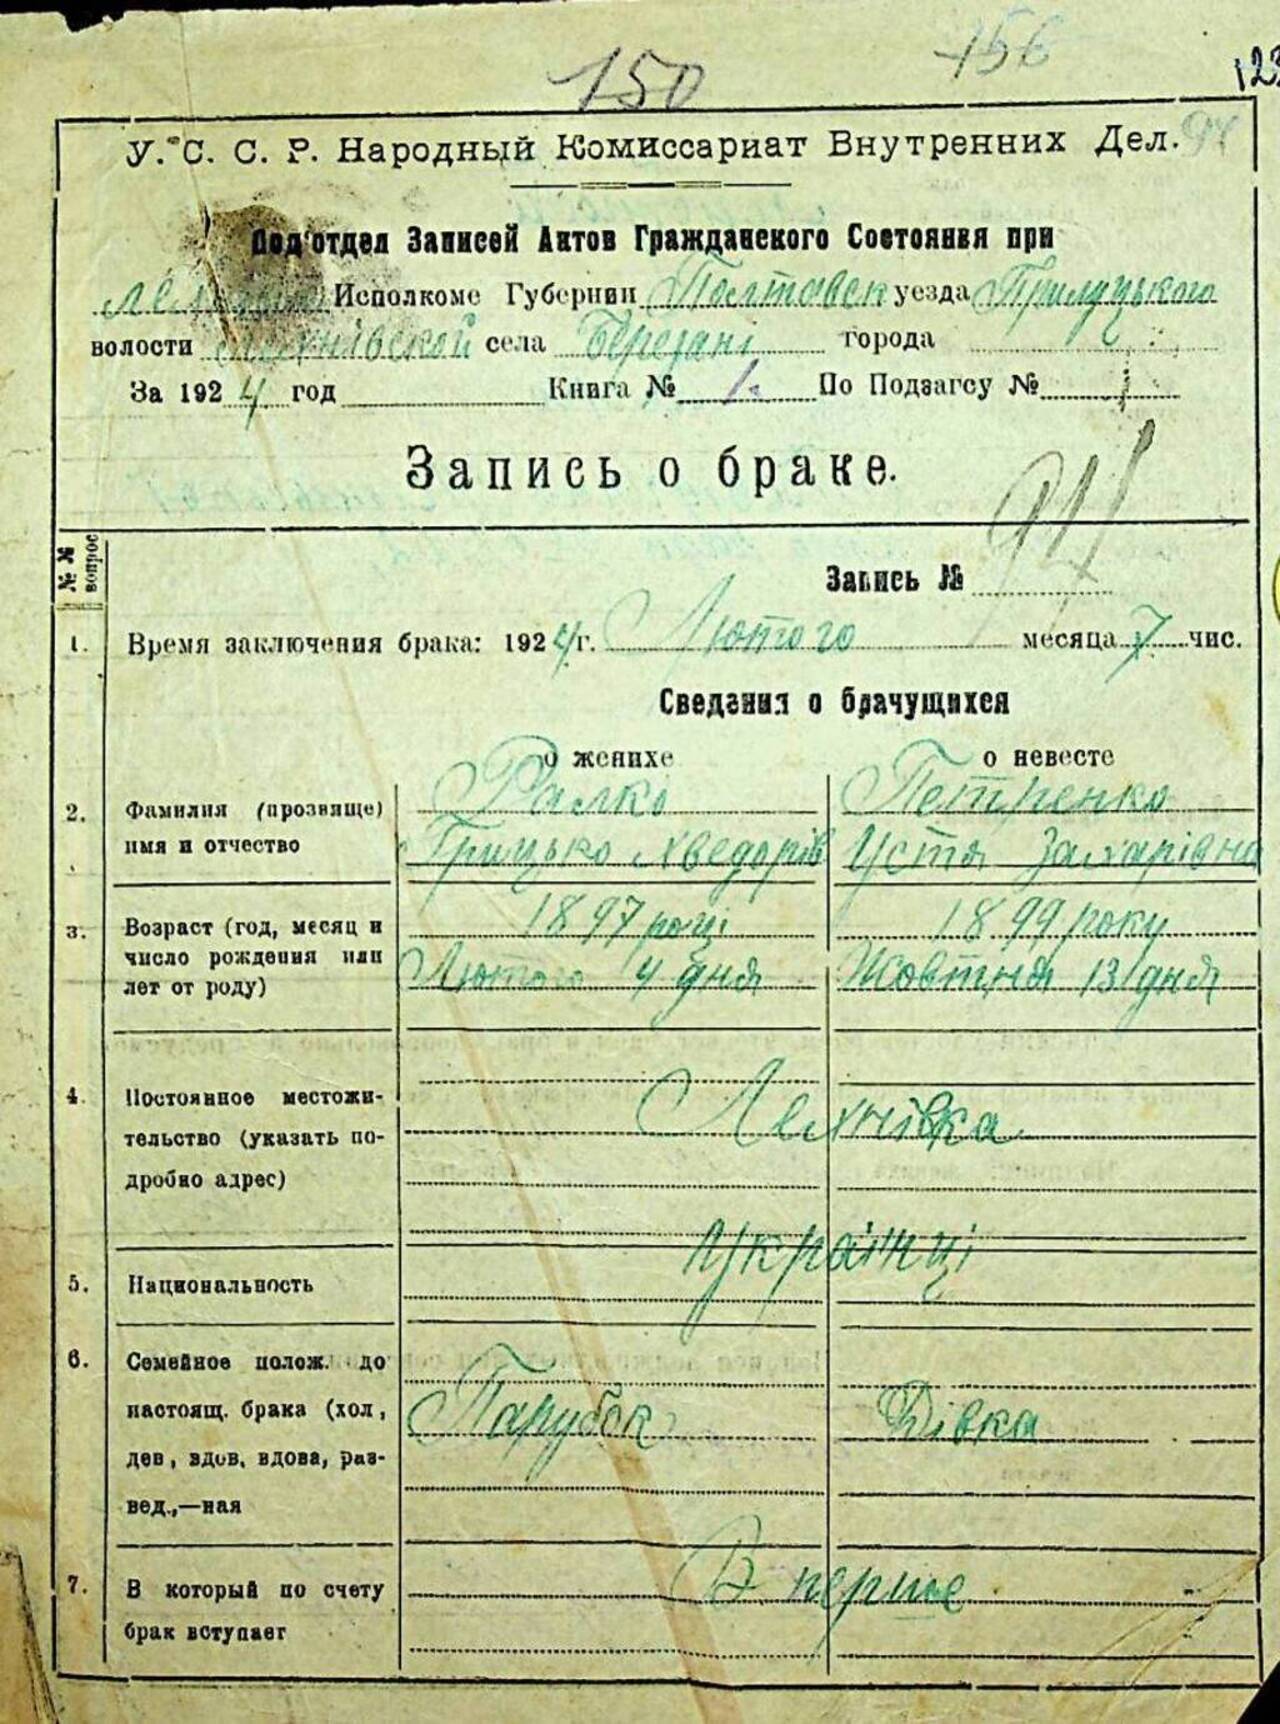 150
156
123
94
У. С. С. Р. Народный Комиссариат Внутренних Дел.
Под'отдел Записей Актов Гражданского Состояния при
Исполкоме Губернии Полтавск уезда Прилуцького
волости села Березані города
За 1924 год Книга № 1. По Подзагсу №
Запись о браке.
№ № вопрос
Запись №
1. Время заключения брака: 1924 г. Лютого месяца 7 чис.
Сведения о брачущихся
о женихе о невесте
2. Фамилия (прозвище) Ралко Петренко
имя и отчество Грицько Хведорів Устя Захарівна
3. Возраст (год, месяц и 1897 році 1899 року
число рождения или Лютого 4 дня Жовтня 13 дня
лет от роду)
4. Постоянное местожи- Лехнівка
тельство (указать по-
дробно адрес)
Українці
5. Национальность
6. Семейное полож. до
настоящ. брака (хол, Парубок Дівка
дев, вдов, вдова, раз-
вед.,—ная
7. В который по счету В перше
брак вступает